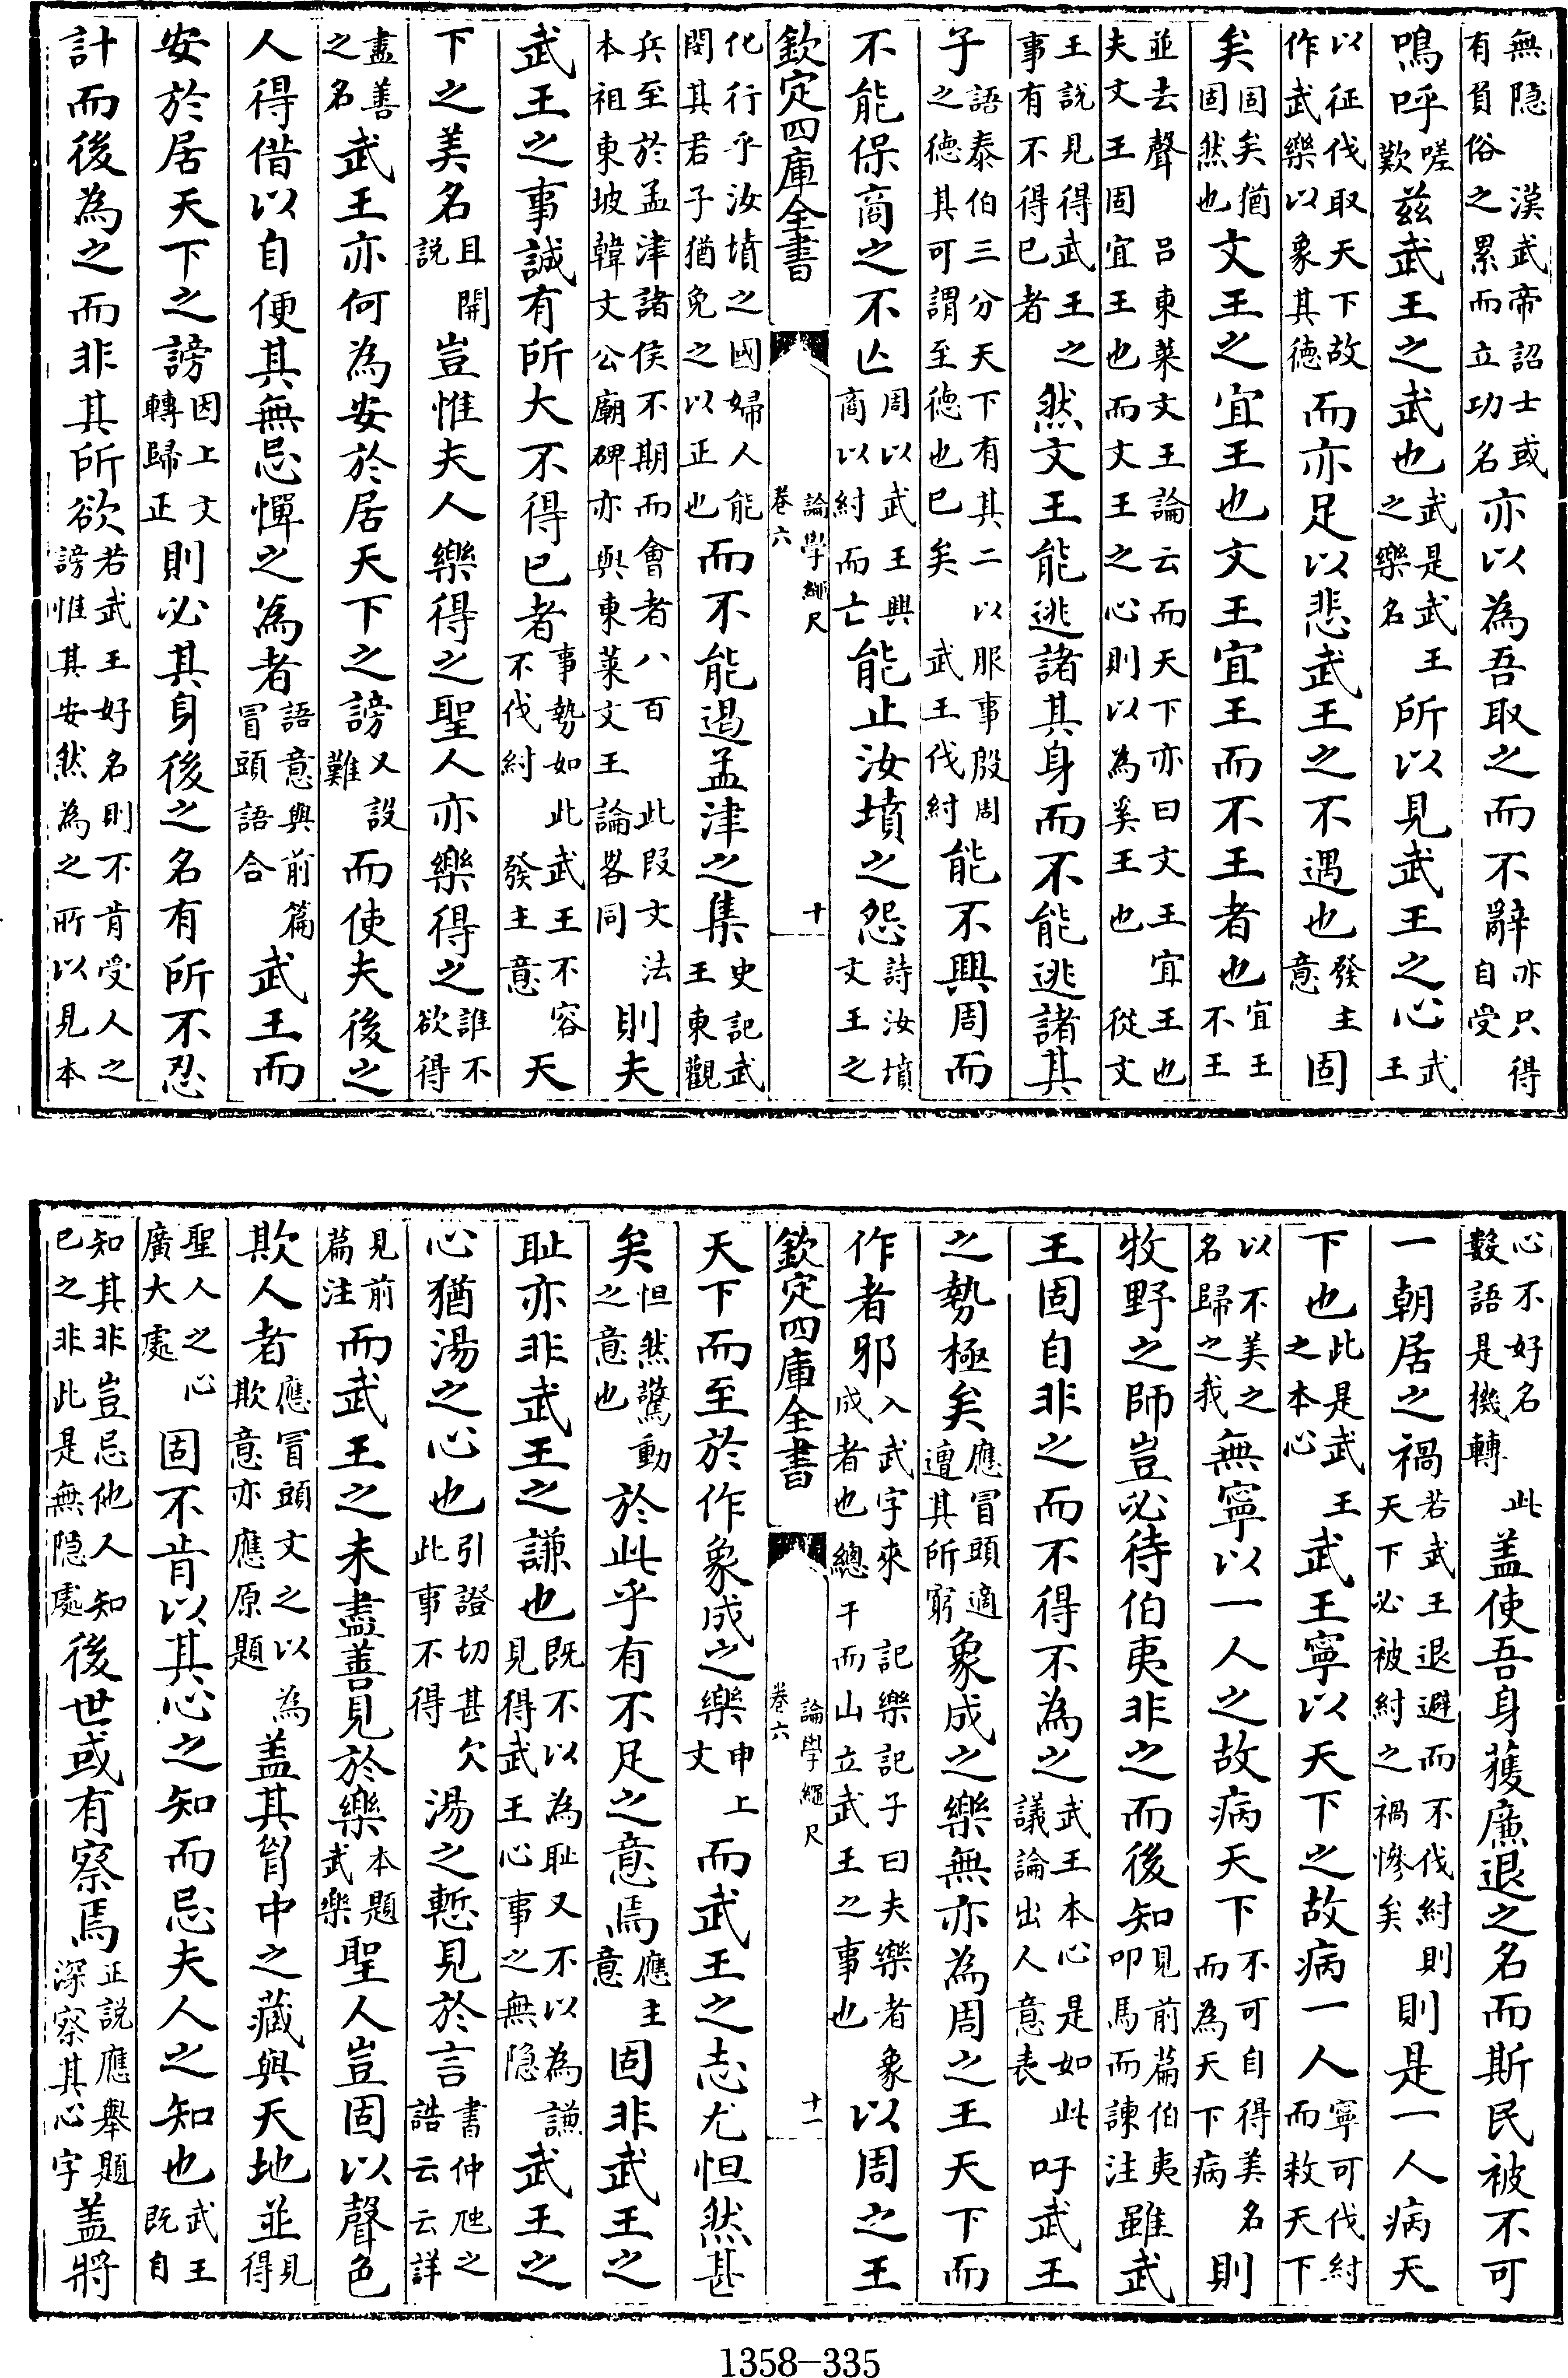 無隐　漢武帝詔士或有負俗之累而立功名亦以為吾取之而不辭亦只得自受
嗚呼嗟歎茲武王之武也武是武王之樂名所以見武王之心武王
以征伐取天下故作武樂以象其德而亦足以悲武王之不遇也發主意固
矣固矣猶固然也文王之宜王也文王宜王而不王者也宜王不王
並去聲　吕東萊文王論云而天下亦曰文王宜王也夫文王固宜王也而文王之心則以為奚王也　從文
王說見得武王之事有不得已者然文王能逃諸其身而不能逃諸其
子語泰伯三分天下有其二以服事殷周之德其可謂至德也已矣　武王伐紂能不興周而
不能保商之不亾周以武王興商以紂而亡能止汝墳之怨詩汝墳文王之
欽定四庫全書　論學繩尺　卷六　十
化行乎汝墳之國婦人能閔其君子猶免之以正也而不能遏孟津之集史記武王東觀
兵至於孟津諸侯不期而會者八百　此段文法本祖東坡韓文公廟碑亦與東萊文王論畧同則夫
武王之事誠有所大不得已者事勢如此武王不容不伐紂　發主意天
下之美名且開說豈惟夫人樂得之聖人亦樂得之誰不欲得
盡善之名武王亦何為安於居天下之謗又設難而使夫後之
人得借以自便其無忌憚之為者語意與前篇冒頭語合武王而
安於居天下之謗因上文轉歸正則必其身後之名有所不忍
計而後為之而非其所欲若武王好名則不肯受人之謗惟其安然為之所以見本
心不好名　此數語是機轉盖使吾身獲廉退之名而斯民被不可
一朝居之禍若武王退避而不伐紂則天下必被紂之禍慘矣則是一人病天
下也此是武王之本心武王寧以天下之故病一人寧可伐紂而救天下
以不美之名歸之我無寧以一人之故病天下不可自得美名而為天下病則
牧野之師豈必待伯夷非之而後知見前篇伯夷叩馬而諫注雖武
王固自非之而不得不為之武王本心是如此議論出人意表吁武王
之勢極矣應冒頭適遭其所窮象成之樂無亦為周之王天下而
作者邪入武字來　記樂記子曰夫樂者象成者也總干而山立武王之事也以周之王
欽定四庫全書　論學繩尺　卷六　十一
天下而至於作象成之樂申上文而武王之志尤怛然甚
矣怛然驚動之意也於此乎有不足之意焉應主意固非武王之
耻亦非武王之謙也既不以為耻又不以為謙見得武王心事之無隐武王之
心猶湯之心也引證切甚欠此事不得湯之慙見於言書仲虺之誥云云詳
見前篇注而武王之未盡善見於樂本題武樂聖人豈固以聲色
欺人者應冒頭文之以為欺意亦應原題盖其胷中之藏與天地並見得
聖人之心廣大處固不肯以其心之知而忌夫人之知也武王既自
知其非豈忌他人知己之非此是無隐處後世或有察焉正說應舉題深察其心字盖將
1358-335